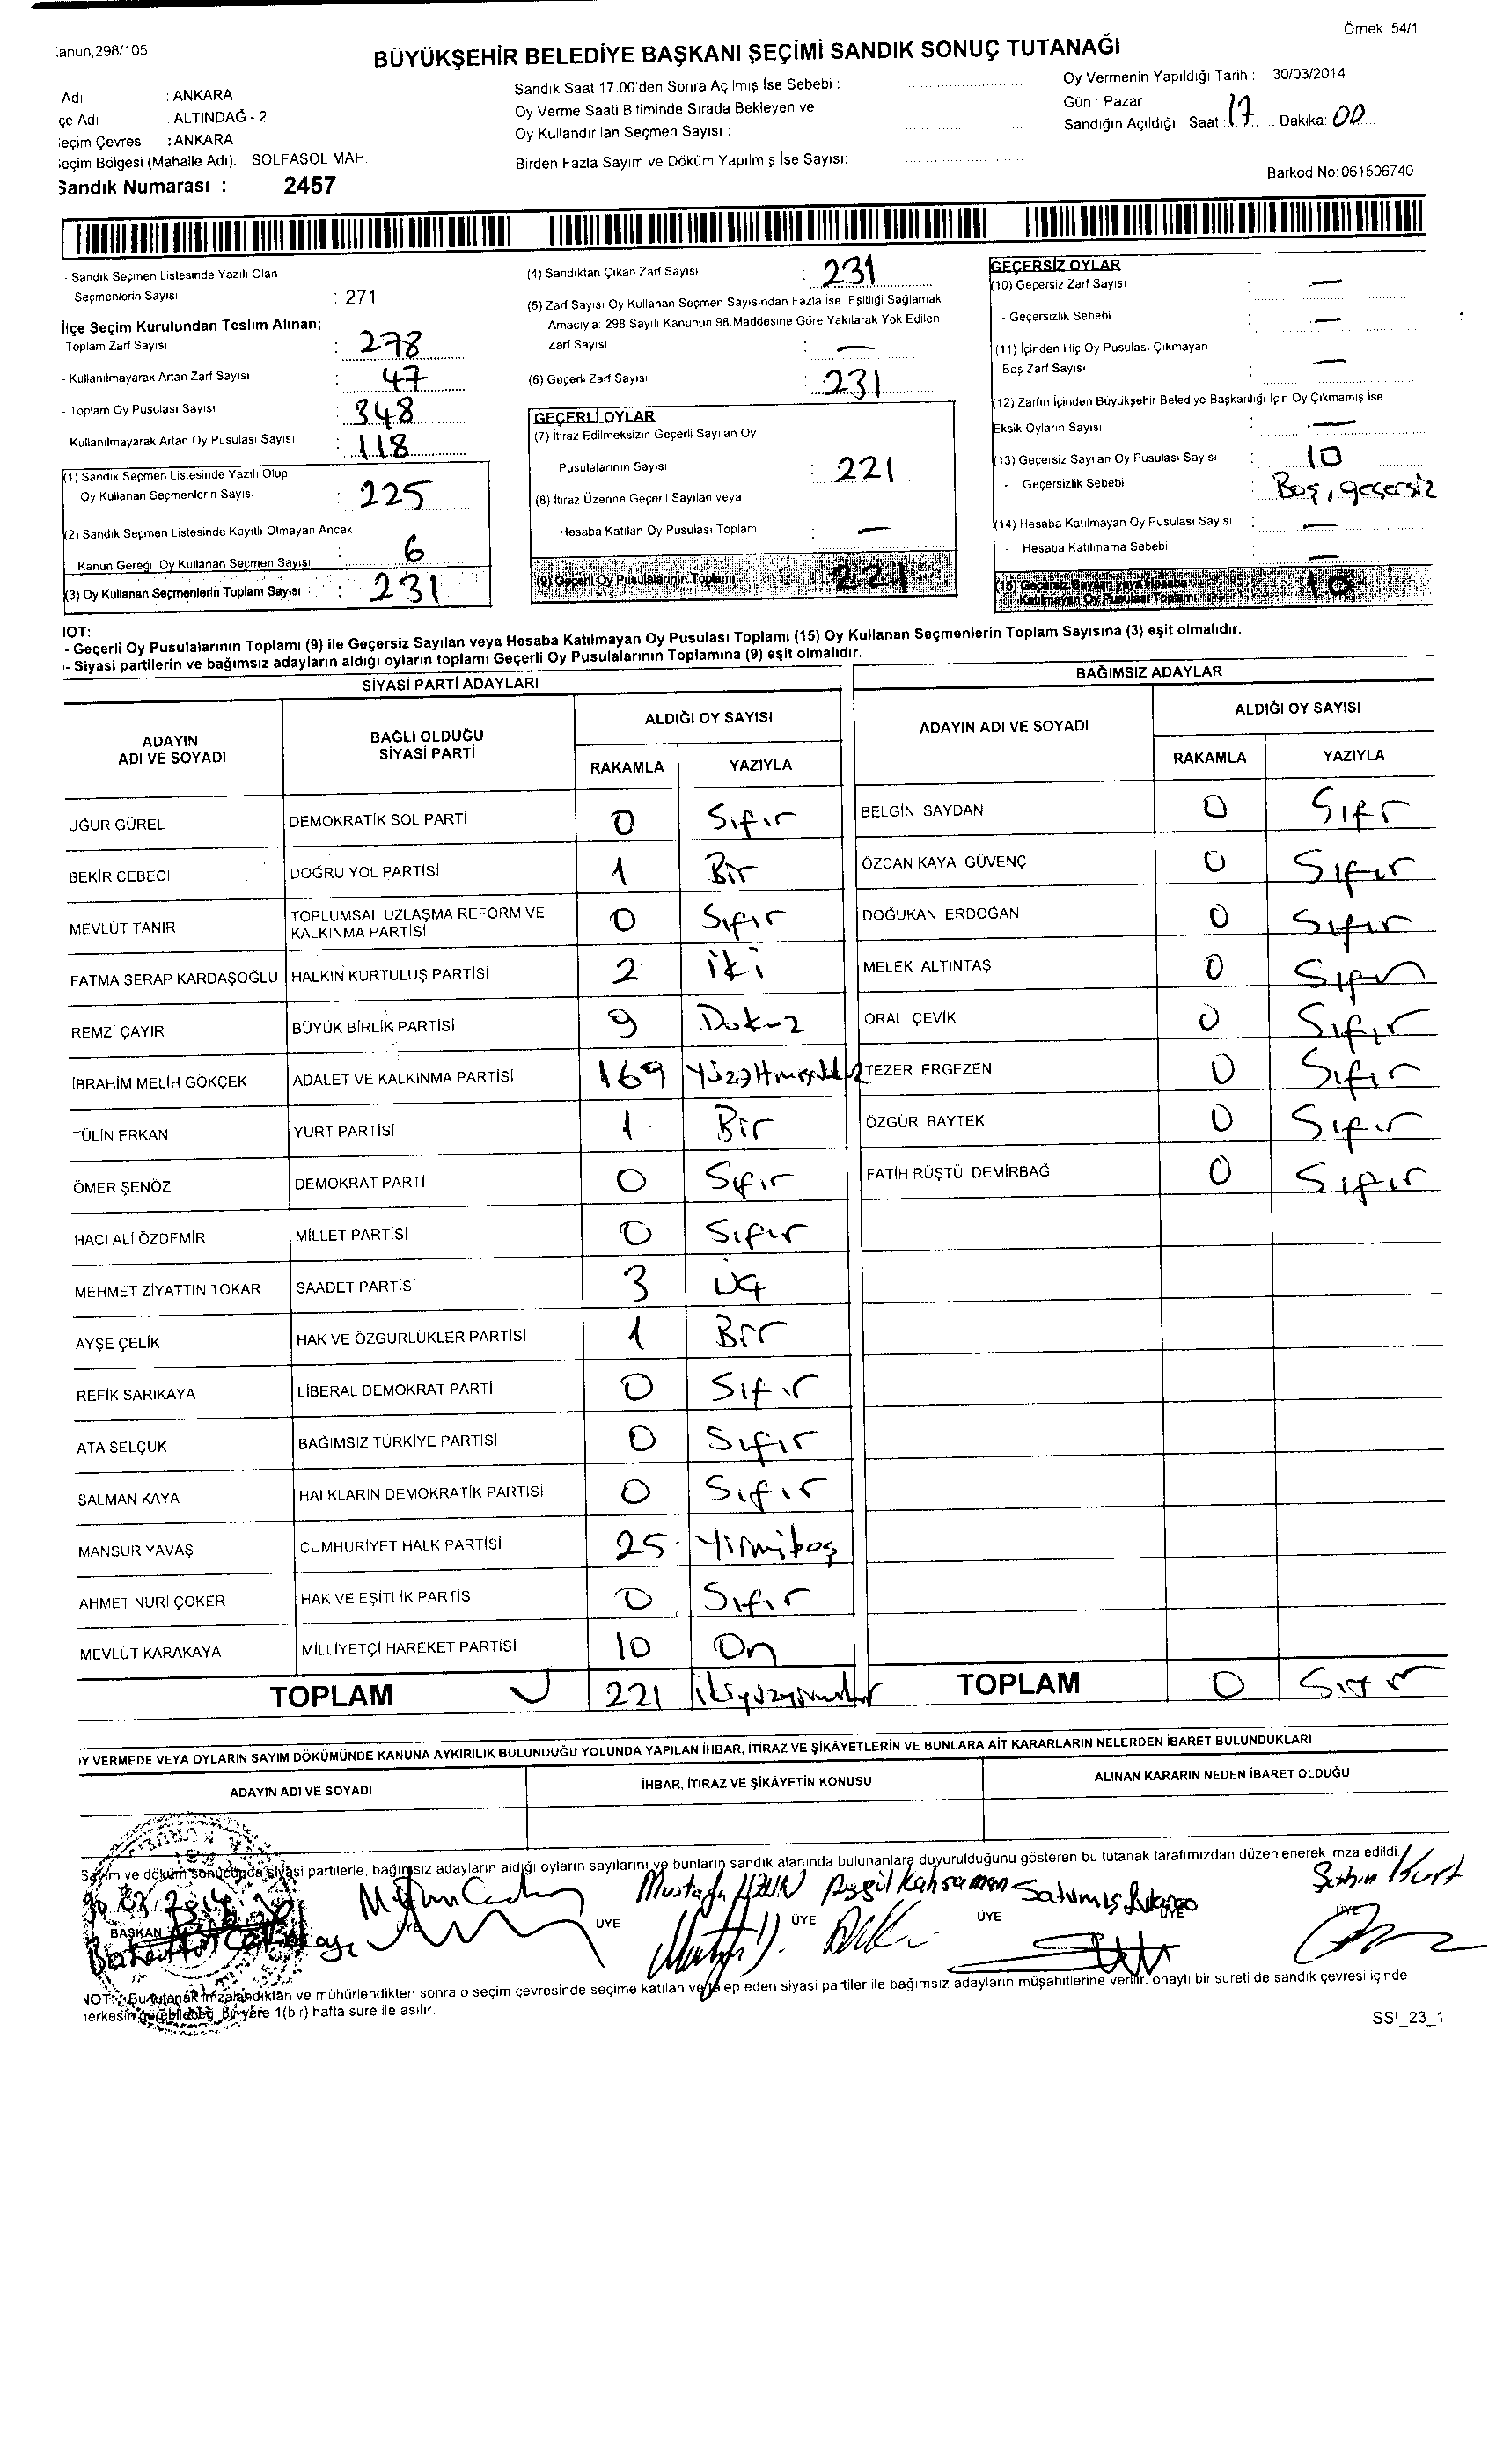 Örnek. 54/1
anun,298/105
BÜYÜKŞEHİR BELEDİYE BAŞKANI SEÇİMİ SANDIK SONUÇ TUTANAĞI
Adı : ANKARA
çe Adı : ALTINDAĞ - 2
eçim Çevresi : ANKARA
eçim Bölgesi (Mahalle Adı): SOLFASOL MAH.
Sandık Numarası : 2457
Sandık Saat 17.00'den Sonra Açılmış İse Sebebi :
Oy Verme Saati Bitiminde Sırada Bekleyen ve
Oy Kullandırılan Seçmen Sayısı :
Birden Fazla Sayım ve Döküm Yapılmış İse Sayısı:
Oy Vermenin Yapıldığı Tarih : 30/03/2014
Gün : Pazar
Sandığın Açıldığı Saat : 17 Dakika: 00
Barkod No: 061506740
- Sandık Seçmen Listesinde Yazılı Olan
Seçmenlerin Sayısı : 271
İlçe Seçim Kurulundan Teslim Alınan;
-Toplam Zarf Sayısı : 278
- Kullanılmayarak Artan Zarf Sayısı : 47
- Toplam Oy Pusulası Sayısı : 348
- Kullanılmayarak Artan Oy Pusulası Sayısı : 118
(1) Sandık Seçmen Listesinde Yazılı Olup
Oy Kullanan Seçmenlerin Sayısı : 225
(2) Sandık Seçmen Listesinde Kayıtlı Olmayan Ancak
Kanun Gereği Oy Kullanan Seçmen Sayısı : 6
(3) Oy Kullanan Seçmenlerin Toplam Sayısı : 231
(4) Sandıktan Çıkan Zarf Sayısı : 231
(5) Zarf Sayısı Oy Kullanan Seçmen Sayısından Fazla İse, Eşitliği Sağlamak
Amacıyla: 298 Sayılı Kanunun 98.Maddesine Göre Yakılarak Yok Edilen
Zarf Sayısı : —
(6) Geçerli Zarf Sayısı : 231
GEÇERLİ OYLAR
(7) İtiraz Edilmeksizin Geçerli Sayılan Oy
Pusulalarının Sayısı : 221
(8) İtiraz Üzerine Geçerli Sayılan veya
Hesaba Katılan Oy Pusulası Toplamı : —
(9) Geçerli Oy Pusulalarının Toplamı 221
GEÇERSİZ OYLAR
(10) Geçersiz Zarf Sayısı : —
- Geçersizlik Sebebi : —
(11) İçinden Hiç Oy Pusulası Çıkmayan
Boş Zarf Sayısı : —
(12) Zarfın İçinden Büyükşehir Belediye Başkanlığı İçin Oy Çıkmamış İse
Eksik Oyların Sayısı : —
(13) Geçersiz Sayılan Oy Pusulası Sayısı : 10
- Geçersizlik Sebebi : Boş, geçersiz
(14) Hesaba Katılmayan Oy Pusulası Sayısı : —
- Hesaba Katılmama Sebebi : —
(15) Geçersiz Sayılan veya Hesaba
Katılmayan Oy Pusulası Toplamı 10
NOT:
- Geçerli Oy Pusulalarının Toplamı (9) ile Geçersiz Sayılan veya Hesaba Katılmayan Oy Pusulası Toplamı (15) Oy Kullanan Seçmenlerin Toplam Sayısına (3) eşit olmalıdır.
- Siyasi partilerin ve bağımsız adayların aldığı oyların toplamı Geçerli Oy Pusulalarının Toplamına (9) eşit olmalıdır.
SİYASİ PARTİ ADAYLARI
ADAYIN ADI VE SOYADI
BAĞLI OLDUĞU SİYASİ PARTİ
ALDIĞI OY SAYISI
RAKAMLA YAZIYLA
UĞUR GÜREL DEMOKRATİK SOL PARTİ 0 Sıfır
BEKİR CEBECİ DOĞRU YOL PARTİSİ 1 Bir
MEVLÜT TANIR TOPLUMSAL UZLAŞMA REFORM VE KALKINMA PARTİSİ 0 Sıfır
FATMA SERAP KARDAŞOĞLU HALKIN KURTULUŞ PARTİSİ 2 iki
REMZİ ÇAYIR BÜYÜK BİRLİK PARTİSİ 9 Dokuz
İBRAHİM MELİH GÖKÇEK ADALET VE KALKINMA PARTİSİ 169 Yüzaltmışdokuz
TÜLİN ERKAN YURT PARTİSİ 1 Bir
ÖMER ŞENÖZ DEMOKRAT PARTİ 0 Sıfır
HACI ALİ ÖZDEMİR MİLLET PARTİSİ 0 Sıfır
MEHMET ZİYATTİN TOKAR SAADET PARTİSİ 3 Üç
AYŞE ÇELİK HAK VE ÖZGÜRLÜKLER PARTİSİ 1 Bir
REFİK SARIKAYA LİBERAL DEMOKRAT PARTİ 0 Sıfır
ATA SELÇUK BAĞIMSIZ TÜRKİYE PARTİSİ 0 Sıfır
SALMAN KAYA HALKLARIN DEMOKRATİK PARTİSİ 0 Sıfır
MANSUR YAVAŞ CUMHURİYET HALK PARTİSİ 25 Yirmibeş
AHMET NURİ ÇOKER HAK VE EŞİTLİK PARTİSİ 0 Sıfır
MEVLÜT KARAKAYA MİLLİYETÇİ HAREKET PARTİSİ 10 On
TOPLAM 221 ikiyüzyirmibir
BAĞIMSIZ ADAYLAR
ADAYIN ADI VE SOYADI
ALDIĞI OY SAYISI
RAKAMLA YAZIYLA
BELGİN SAYDAN 0 Sıfr
ÖZCAN KAYA GÜVENÇ 0 Sıfır
DOĞUKAN ERDOĞAN 0 Sıfır
MELEK ALTINTAŞ 0 Sıfır
ORAL ÇEVİK 0 Sıfır
TEZER ERGEZEN 0 Sıfır
ÖZGÜR BAYTEK 0 Sıfır
FATİH RÜŞTÜ DEMİRBAĞ 0 Sıfır
TOPLAM 0 Sıfır
Y VERMEDE VEYA OYLARIN SAYIM DÖKÜMÜNDE KANUNA AYKIRILIK BULUNDUĞU YOLUNDA YAPILAN İHBAR, İTİRAZ VE ŞİKÂYETLERİN VE BUNLARA AİT KARARLARIN NELERDEN İBARET BULUNDUKLARI
ADAYIN ADI VE SOYADI İHBAR, İTİRAZ VE ŞİKÂYETİN KONUSU ALINAN KARARIN NEDEN İBARET OLDUĞU
Sayım ve döküm sonucunda siyasi partilerle, bağımsız adayların aldığı oyların sayılarını ve bunların sandık alanında bulunanlara duyurulduğunu gösteren bu tutanak tarafımızdan düzenlenerek imza edildi.
Mustafa UZUN Aygül Kahraman Satılmış Şahin Kurt
BAŞKAN ÜYE ÜYE ÜYE ÜYE ÜYE ÜYE
NOT: Bu tutanak imzalandıktan ve mühürlendikten sonra o seçim çevresinde seçime katılan ve talep eden siyasi partiler ile bağımsız adayların müşahitlerine verilir, onaylı bir sureti de sandık çevresi içinde
herkesin görebileceği bir yere 1(bir) hafta süre ile asılır.
SSI_23_1